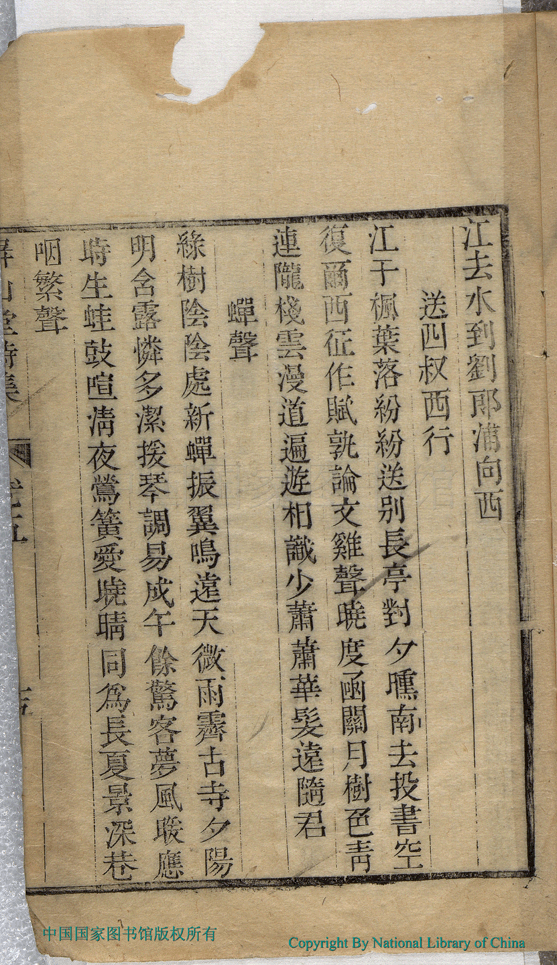 江去水到劉郎浦向西
送四叔西行
江干楓葉落紛紛送别長亭對夕曛南去投書空
復爾西征作賦孰論文雞聲曉度函關月樹色青
連隴棧雲漫道遍遊相識少蕭蕭華髪遠隨君
蟬聲
綠樹陰陰處新蟬振翼鳴遠天微雨霽古寺夕陽
明含露憐多潔援琴調易成午餘驚客夢風暖應
時生蛙鼓喧清夜鶯簧愛曉晴同爲長夏景深巷
咽繁聲
山堂詩集
卷五
中国国家图书馆版权所有
Copyright By National Library of China